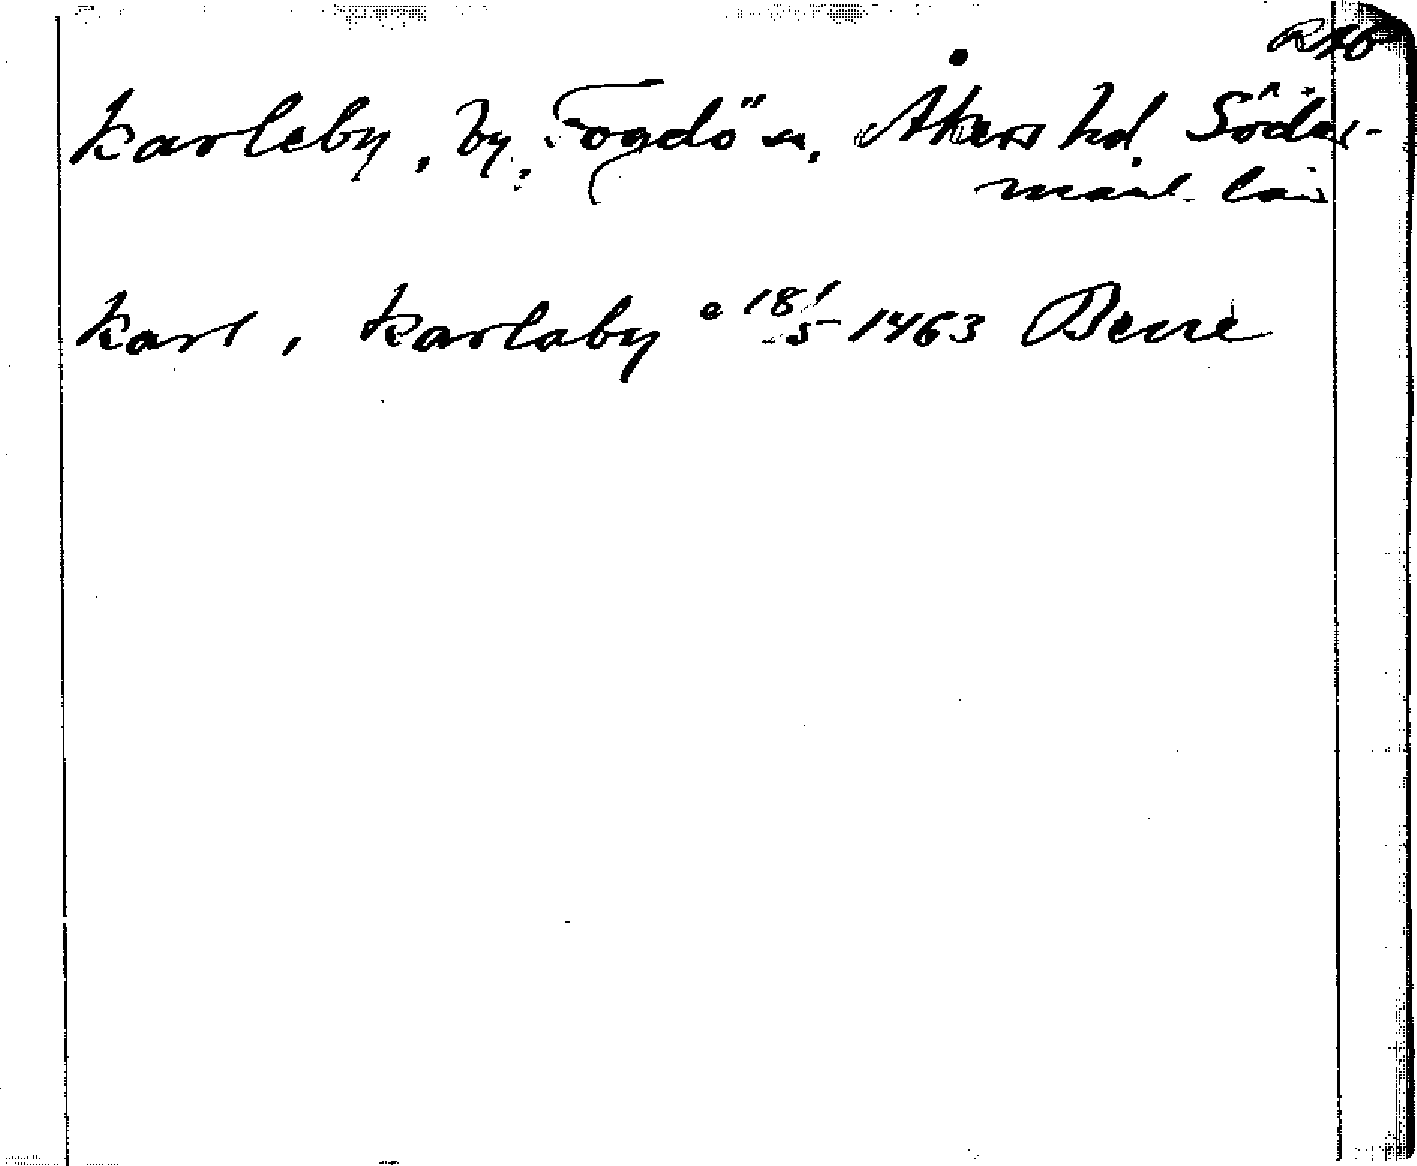 Karleby, by, Fogdö sn, Åkers hd, Söder-
manl. län
Karl, Karlaby e 18/5 1463